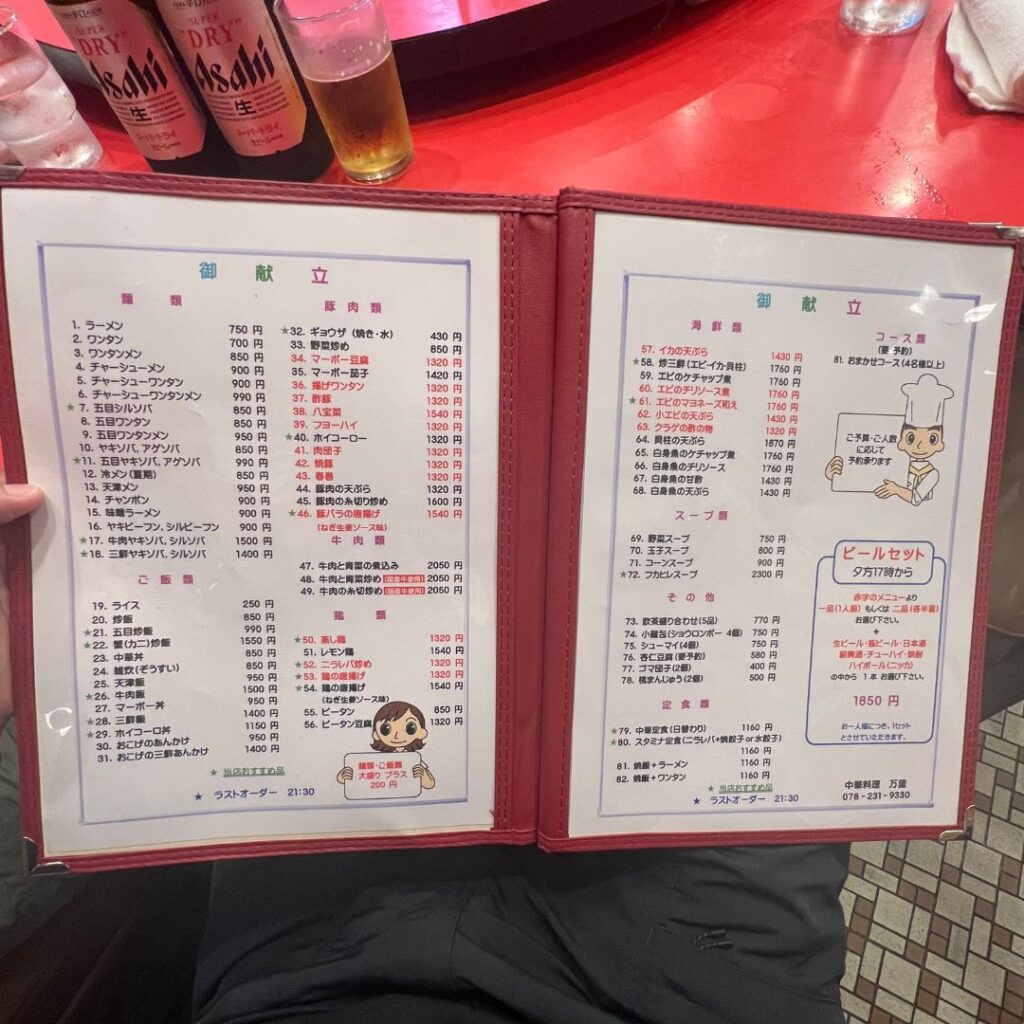 SUPER "DRY"
Asahi
生
スーパードライ
SUPER "DRY"
Asahi
生
スーパードライ
御献立
麺類
1. ラーメン 750 円
2. ワンタン 700 円
3. ワンタンメン 850 円
4. チャーシューメン 900 円
5. チャーシューワンタン 900 円
6. チャーシューワンタンメン 990 円
★7. 五目シルソバ 850 円
8. 五目ワンタン 850 円
9. 五目ワンタンメン 950 円
10. ヤキソバ、アゲソバ 850 円
★11. 五目ヤキソバ、アゲソバ 990 円
12. 冷メン(夏期) 850 円
13. 天津メン 950 円
14. チャンポン 900 円
15. 味噌ラーメン 900 円
16. ヤキビーフン、シルビーフン 900 円
★17. 牛肉ヤキソバ、シルソバ 1500 円
★18. 三鮮ヤキソバ、シルソバ 1400 円
ご飯類
19. ライス 250 円
20. 炒飯 850 円
★21. 五目炒飯 990 円
★22. 蟹(カニ)炒飯 1550 円
23. 中華丼 850 円
24. 雑炊(ぞうすい) 850 円
25. 天津飯 950 円
★26. 牛肉飯 1500 円
27. マーボー丼 950 円
★28. 三鮮飯 1400 円
★29. ホイコーロ丼 1150 円
30. おこげのあんかけ 950 円
31. おこげの三鮮あんかけ 1400 円
豚肉類
★32. ギョウザ (焼き・水) 430 円
33. 野菜炒め 850 円
34. マーボー豆腐 1320 円
35. マーボー茄子 1420 円
36. 揚げワンタン 1320 円
37. 酢豚 1320 円
38. 八宝菜 1540 円
39. フヨーハイ 1320 円
★40. ホイコーロー 1320 円
41. 肉団子 1320 円
42. 焼豚 1320 円
43. 春巻 1320 円
44. 豚肉の天ぷら 1320 円
45. 豚肉の糸切り炒め 1600 円
★46. 豚バラの唐揚げ 1540 円
(ねぎ生姜ソース味)
牛肉類
47. 牛肉と青菜の煮込み 2050 円
48. 牛肉と青菜炒め (国産牛使用) 2050 円
49. 牛肉の糸切炒め (国産牛使用) 2050 円
鶏類
★50. 蒸し鶏 1320 円
51. レモン鶏 1540 円
★52. ニラレバ炒め 1320 円
★53. 鶏の唐揚げ 1320 円
★54. 鶏の唐揚げ 1540 円
(ねぎ生姜ソース味)
55. ピータン 850 円
56. ピータン豆腐 1320 円
麺類・ご飯類
大盛り プラス
200 円
★ 当店おすすめ品
★ ラストオーダー 21:30
御献立
海鮮類
57. イカの天ぷら 1430 円
★58. 炒三鮮(エビ・イカ・貝柱) 1760 円
59. エビのケチャップ煮 1760 円
60. エビのチリソース煮 1760 円
★61. エビのマヨネーズ和え 1760 円
62. 小エビの天ぷら 1430 円
63. クラゲの酢の物 1320 円
64. 貝柱の天ぷら 1870 円
65. 白身魚のケチャップ煮 1760 円
66. 白身魚のチリソース 1760 円
67. 白身魚の甘酢 1430 円
68. 白身魚の天ぷら 1430 円
スープ類
69. 野菜スープ 750 円
70. 玉子スープ 800 円
71. コーンスープ 900 円
★72. フカヒレスープ 2300 円
その他
73. 飲茶盛り合わせ(5品) 770 円
74. 小籠包(ショウロンポー 4個) 750 円
75. シューマイ(4個) 750 円
76. 杏仁豆腐(要予約) 580 円
77. ゴマ団子(2個) 400 円
78. 桃まんじゅう(2個) 500 円
定食類
★79. 中華定食(日替わり) 1160 円
★80. スタミナ定食(ニラレバ+焼餃子or水餃子)
1160 円
81. 焼飯+ラーメン 1160 円
82. 焼飯+ワンタン 1160 円
★ 当店おすすめ品
★ ラストオーダー 21:30
コース類
(要 予約)
81. おまかせコース(4名様以上)
ご予算・ご人数
に応じて
予約承ります
ビールセット
夕方17時から
赤字のメニューより
一品(1人前) もしくは 二品(各半量)
お選び下さい。
+
生ビール・瓶ビール・日本酒
紹興酒・チューハイ・焼酎
ハイボール(ニッカ)
の中から 1 本 お選び下さい。
1850 円
お一人様につき、1セット
とさせていただきます。
中華料理 万里
078-231-9330